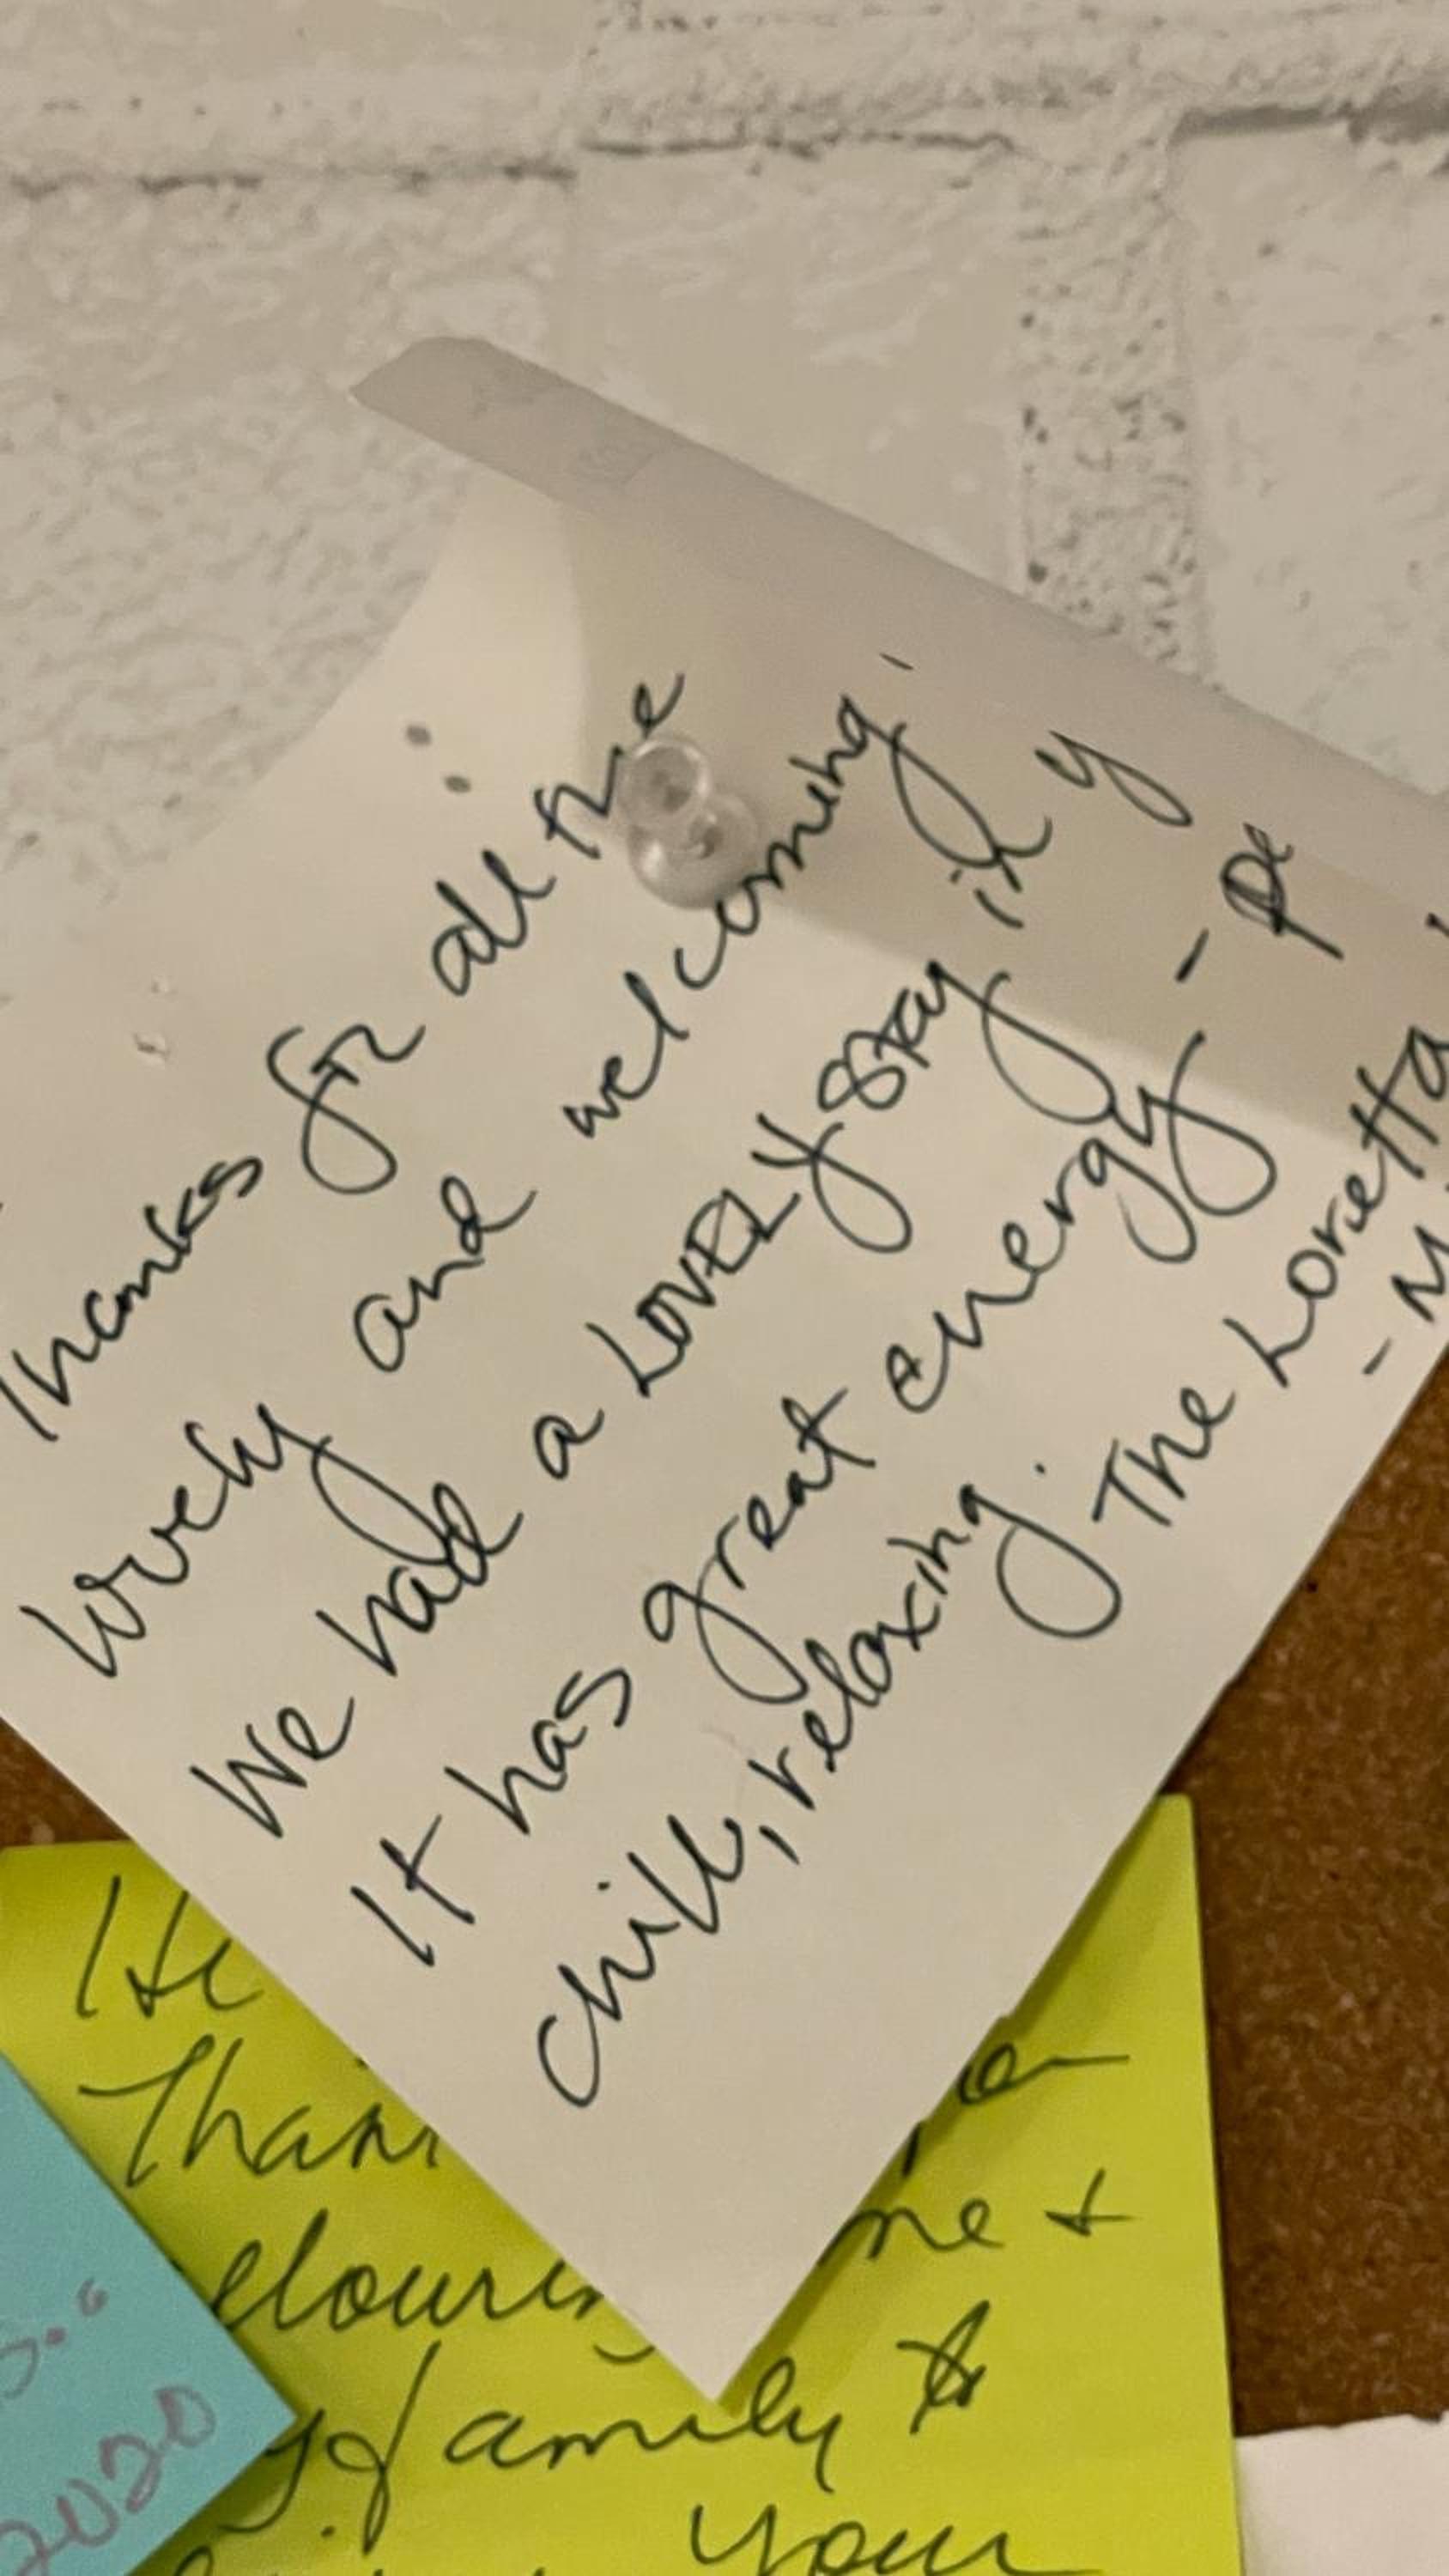 Thanks for all the
lovely and welcoming.
We had a LOVELY stay in y
It has great energy - pe
chill, relaxing. The Loretta
- M
Thank
me +
family
your
2020